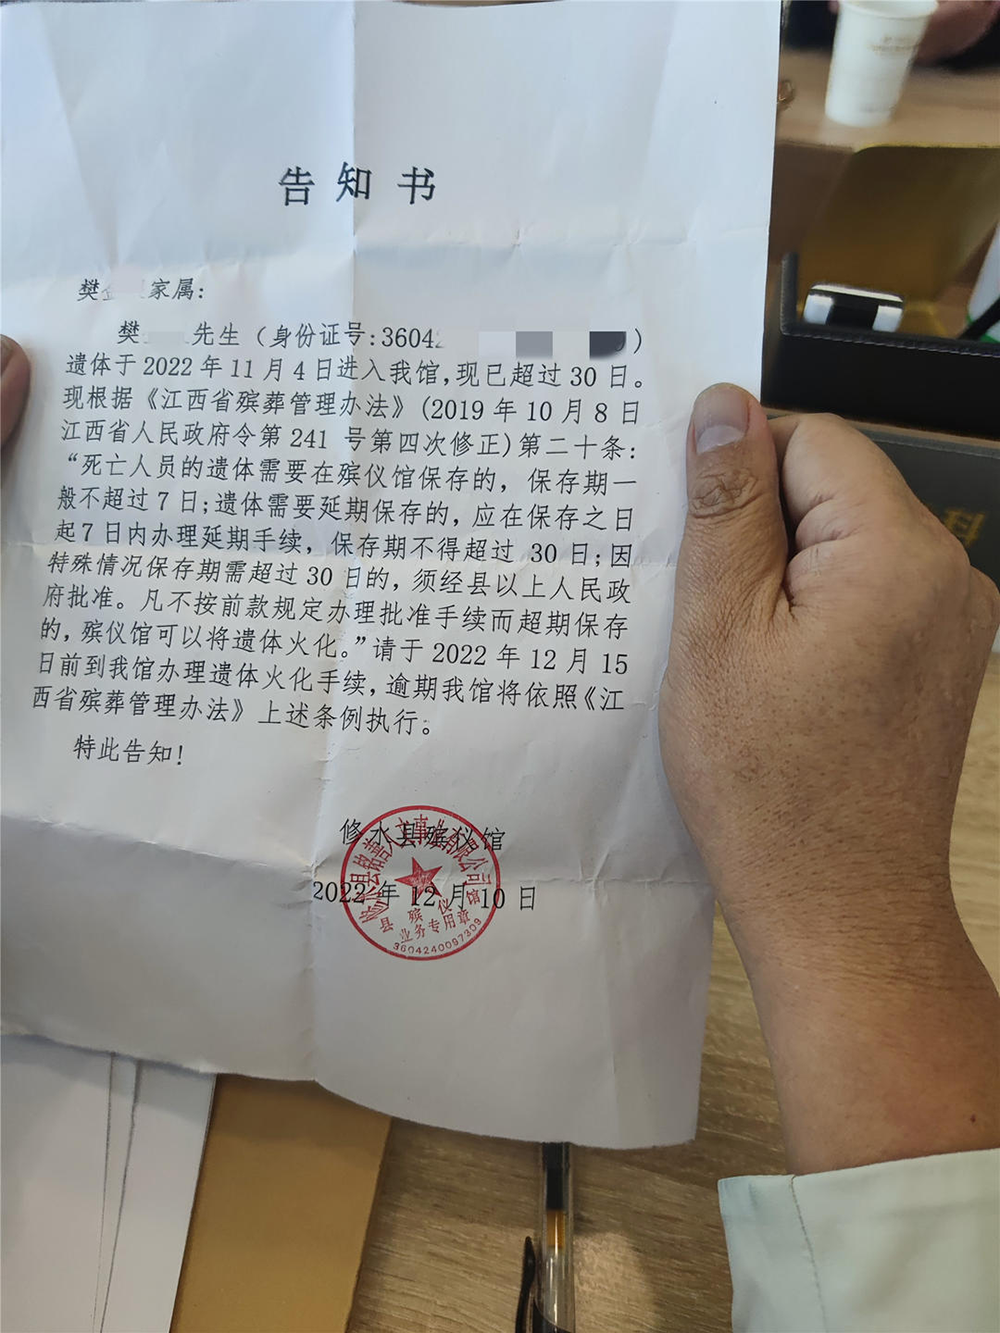 告知书
樊 家属:
樊 先生（身份证号:3604 ）
遗体于2022年11月4日进入我馆,现已超过30日。
现根据《江西省殡葬管理办法》(2019年10月8日
江西省人民政府令第241号第四次修正)第二十条:
“死亡人员的遗体需要在殡仪馆保存的，保存期一
般不超过7日;遗体需要延期保存的,应在保存之日
起7日内办理延期手续，保存期不得超过30日;因
特殊情况保存期需超过30日的，须经县以上人民政
府批准。凡不按前款规定办理批准手续而超期保存
的，殡仪馆可以将遗体火化。”请于2022年12月15
日前到我馆办理遗体火化手续,逾期我馆将依照《江
西省殡葬管理办法》上述条例执行。
特此告知!
修水县殡仪馆
2022年12月10日
县殡仪馆
业务专用章
3604240097309